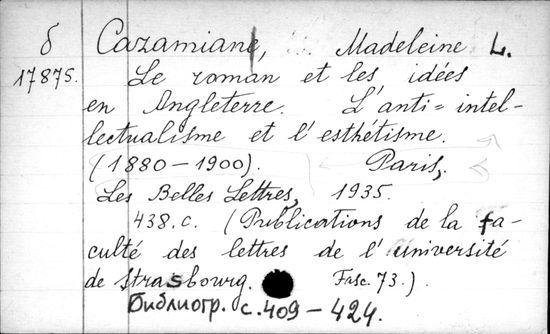 б Cazamian, Madeleine L.
17875. Le roman et les idées
en Angleterre. L'anti=intel-
lectualisme et l'esthétisme.
(1880-1900). Paris,
Les Belles Lettres, 1935.
438.c. (Publications de la fa-
culté des lettres de l'université
de Strasbourg. Fasc. 73.).
Библиогр. с. 409-424.